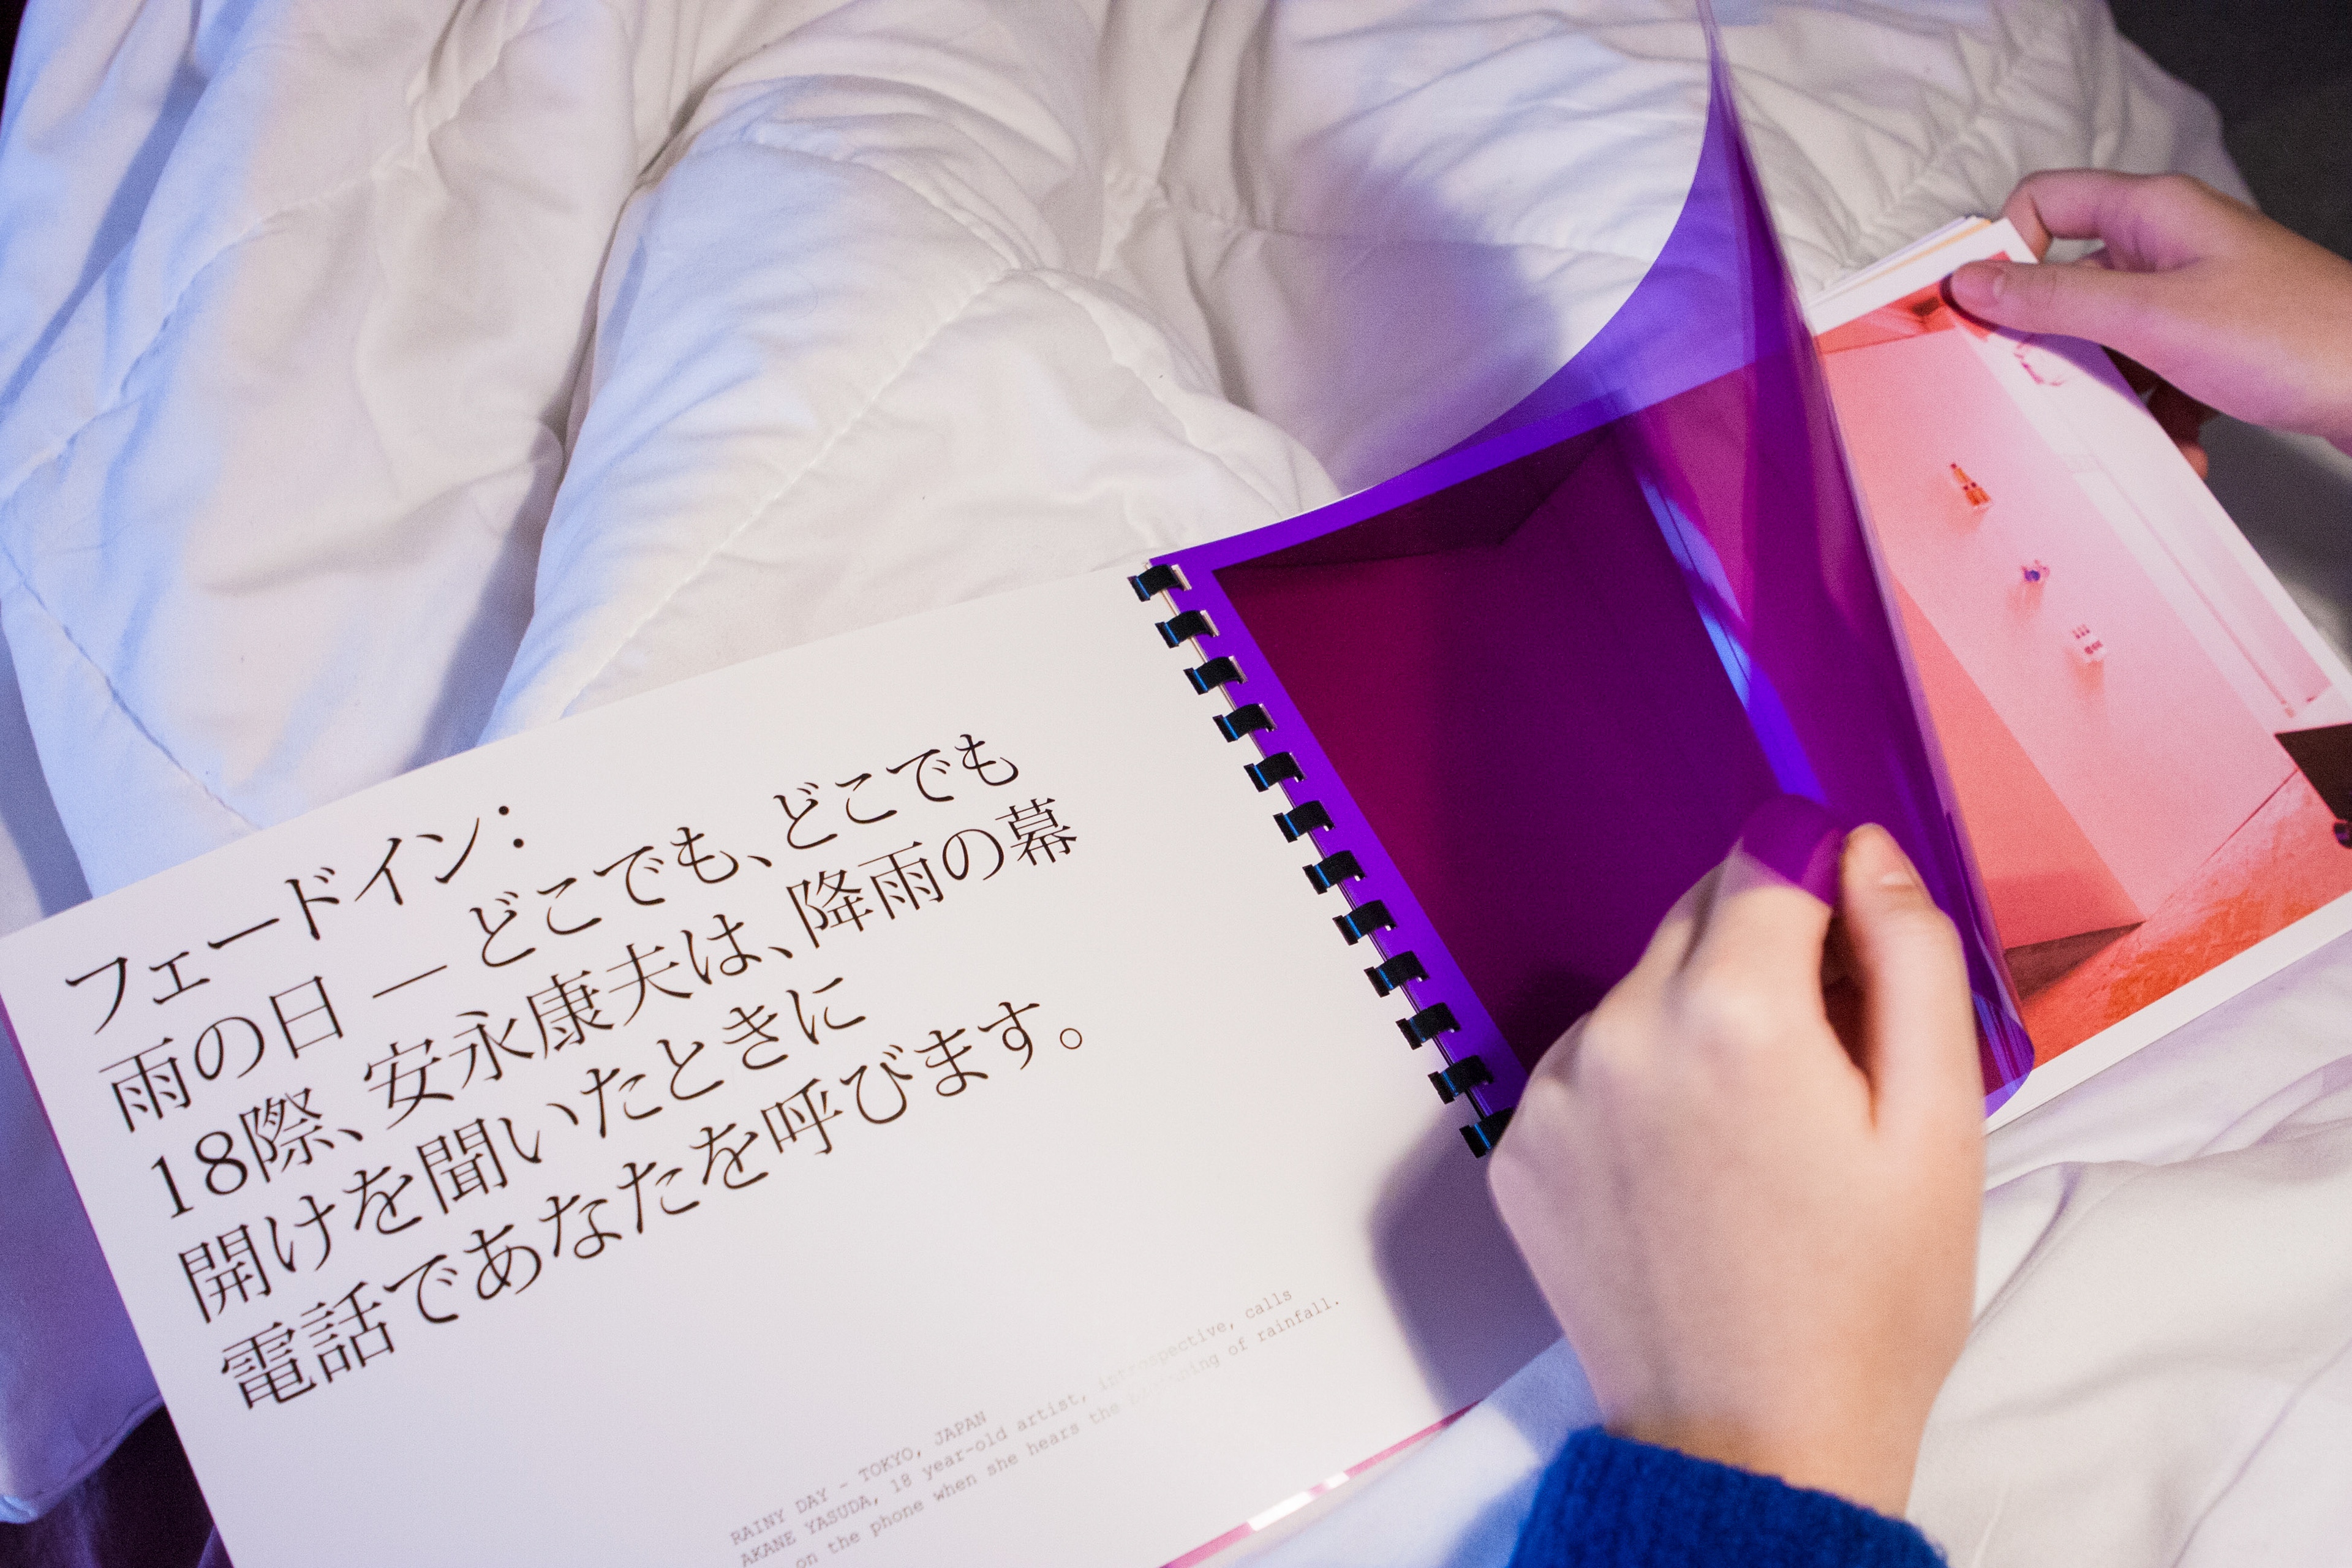 フェードイン：
雨の日 — どこでも、どこでも
18際、安永康夫は、降雨の幕
開けを聞いたときに
電話であなたを呼びます。
RAINY DAY - TOKYO, JAPAN
AKANE YASUDA, 18 year-old artist, introspective, calls
on the phone when she hears the beginning of rainfall.